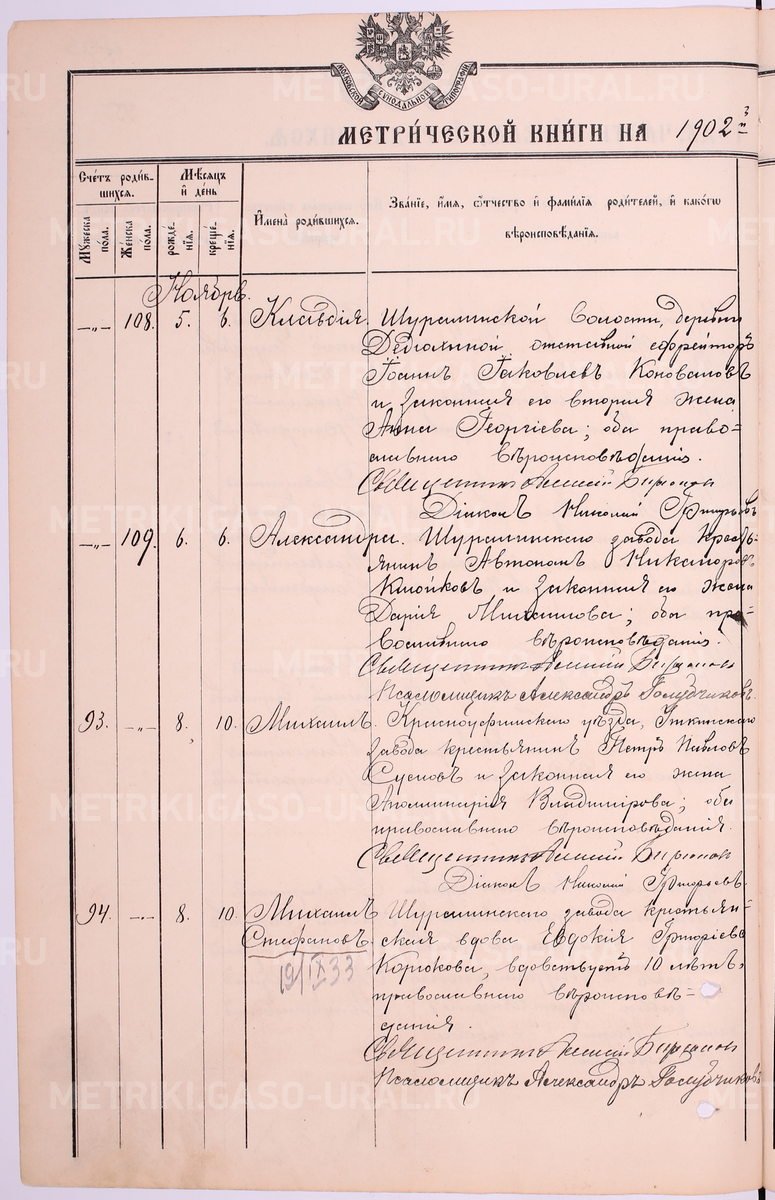 МОСКОВСКОЙ СѴНОДАЛЬНОЙ ТИПОГРАФІИ
МЕТРИ́ЧЕСКОЙ КНИ́ГИ НА 1902
Сче́тъ роди́вшихся.
Мꙋ́жеска пола.
Же́нска пола.
Мѣ́сѧцъ и҆ де́нь
рожде́нїѧ.
креще́нїѧ.
И҆мена̀ роди́вшихсѧ.
Зва́нїе, и҆́мѧ, ѻ҆́тчество и҆ фами́лїѧ роди́телей, и҆ како́гѡ
вѣроисповѣ́данїѧ.
Ноябрь.
—„— 108. 5. 6. Клавдія. Шуралинской волости, деревни
отставной ефрейторъ
Іоаннъ Іаковлевъ Коноваловъ
и законная его вторая жена
Анна Георгіева; оба право-
славнаго вѣроисповѣданія.
Священникъ Алексій
Діаконъ Николай Григорьевъ
—„— 109. 6. 6. Александра. Шуралинскаго завода кресть-
янинъ Автономъ Никаноровъ
и законная его жена
Дарія Михаилова; оба пра-
вославнаго вѣроисповѣданія.
Священникъ Алексій
Псаломщикъ Александръ Голубчиковъ.
93. —„— 8. 10. Михаилъ. Красноуфимскаго уѣзда, Уткинскаго
завода крестьянинъ Петръ Павловъ
и законная его жена
Аполлинарія Владимірова; оба
православнаго вѣроисповѣданія.
Священникъ Алексій
Діаконъ Николай Григорьевъ.
94. —„— 8. 10. Михаилъ Шуралинскаго завода крестьян-
Стефановъ. ская вдова Евдокія Григоріева
19/IX 33 Корюкова, вдовствуетъ 10 лѣтъ,
православнаго вѣроисповѣ-
данія.
Священникъ Алексій
Псаломщикъ Александръ Голубчиковъ
METRIKI.GASO-URAL.RU